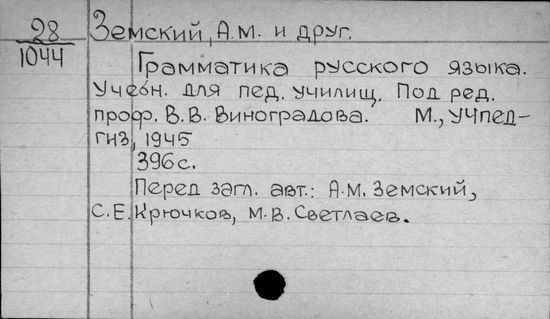 28
1044
Земский, А.М. и друг.
Грамматика русского языка.
Учебн. для пед. училищ. Под ред.
проф. В.В. Виноградова. М., Учпед-
гиз, 1945
396 с.
Перед загл. авт.: А.М. Земский,
С.Е. Крючков, М.В. Светлаев.